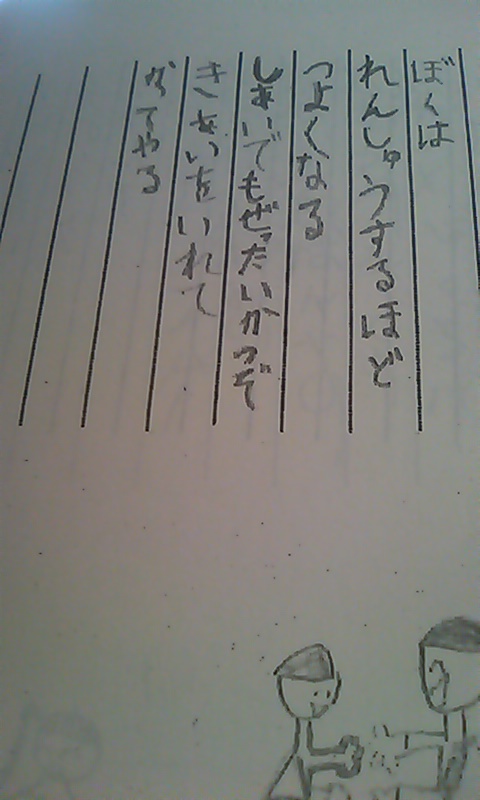 ぼくは
れんしゅうするほど
つよくなる
しあいでもぜったいかつぞ
きあいをいれて
かってやる